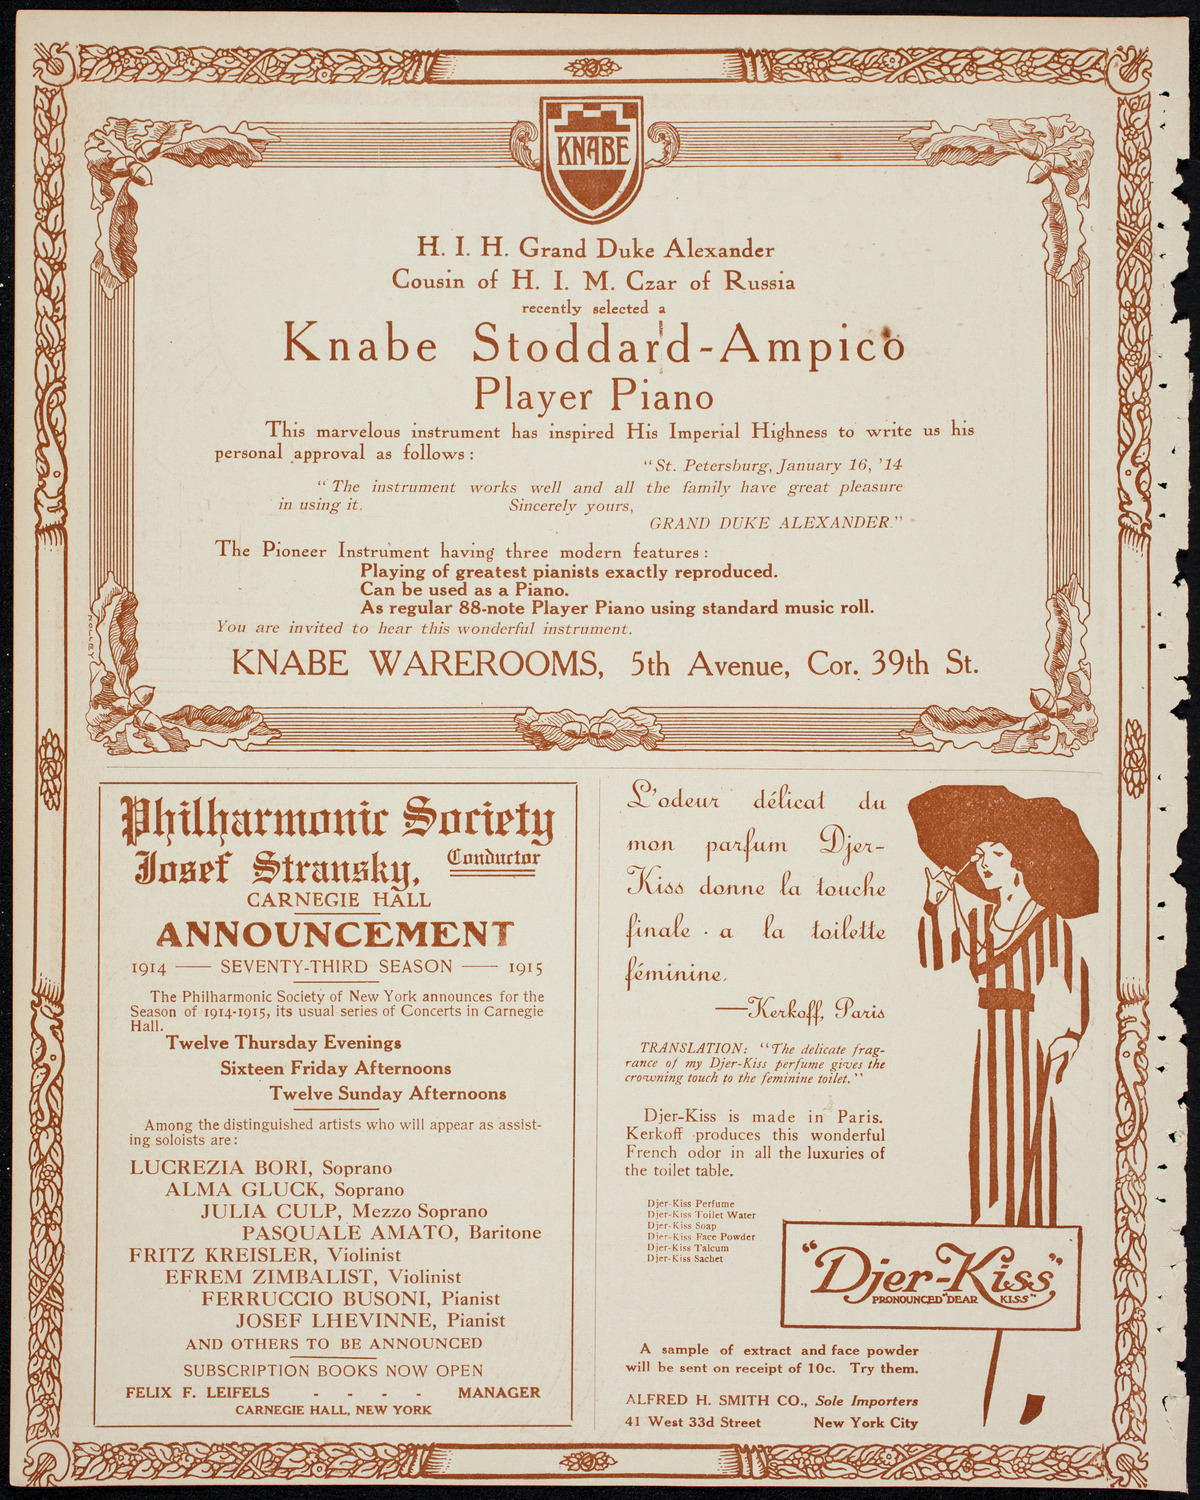 KNABE
H. I. H. Grand Duke Alexander
Cousin of H. I. M. Czar of Russia
recently selected a
Knabe Stoddard-Ampico
Player Piano
This marvelous instrument has inspired His Imperial Highness to write us his
personal approval as follows:
"St. Petersburg, January 16, '14
"The instrument works well and all the family have great pleasure
in using it. Sincerely yours,
GRAND DUKE ALEXANDER."
The Pioneer Instrument having three modern features:
Playing of greatest pianists exactly reproduced.
Can be used as a Piano.
As regular 88-note Player Piano using standard music roll.
You are invited to hear this wonderful instrument.
KNABE WAREROOMS, 5th Avenue, Cor. 39th St.
Philharmonic Society
Josef Stransky, Conductor
CARNEGIE HALL
ANNOUNCEMENT
1914 — SEVENTY-THIRD SEASON — 1915
The Philharmonic Society of New York announces for the
Season of 1914-1915, its usual series of Concerts in Carnegie
Hall.
Twelve Thursday Evenings
Sixteen Friday Afternoons
Twelve Sunday Afternoons
Among the distinguished artists who will appear as assist-
ing soloists are:
LUCREZIA BORI, Soprano
ALMA GLUCK, Soprano
JULIA CULP, Mezzo Soprano
PASQUALE AMATO, Baritone
FRITZ KREISLER, Violinist
EFREM ZIMBALIST, Violinist
FERRUCCIO BUSONI, Pianist
JOSEF LHEVINNE, Pianist
AND OTHERS TO BE ANNOUNCED
SUBSCRIPTION BOOKS NOW OPEN
FELIX F. LEIFELS - - - - MANAGER
CARNEGIE HALL, NEW YORK
L'odeur délicat du
mon parfum Djer-
Kiss donne la touche
finale a la toilette
féminine.
—Kerkoff, Paris
TRANSLATION: "The delicate frag-
rance of my Djer-Kiss perfume gives the
crowning touch to the feminine toilet."
Djer-Kiss is made in Paris.
Kerkoff produces this wonderful
French odor in all the luxuries of
the toilet table.
Djer-Kiss Perfume
Djer-Kiss Toilet Water
Djer-Kiss Soap
Djer-Kiss Face Powder
Djer-Kiss Talcum
Djer-Kiss Sachet
"Djer-Kiss"
PRONOUNCED "DEAR KISS"
A sample of extract and face powder
will be sent on receipt of 10c. Try them.
ALFRED H. SMITH CO., Sole Importers
41 West 33d Street New York City